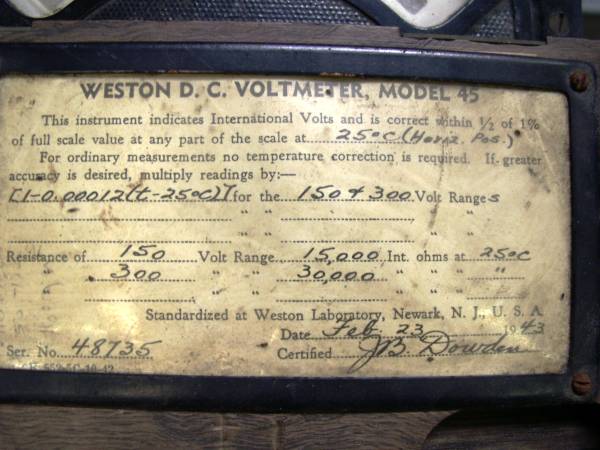 WESTON D. C. VOLTMETER, MODEL 45
This instrument indicates International Volts and is correct within ½ of 1%
of full scale value at any part of the scale at 25°C (Horiz. Pos.)
For ordinary measurements no temperature correction is required. If greater
accuracy is desired, multiply readings by:—
[1-0.00012(t-25°C)] for the 150 & 300 Volt Ranges
" " " "
" " " "
Resistance of 150 Volt Range 15,000 Int. ohms at 25°C
" 300 " " 30,000 " " " "
" " " " " "
Standardized at Weston Laboratory, Newark, N. J., U. S. A.
Date Feb. 23 1943
Ser. No. 48735 Certified JB Dowden